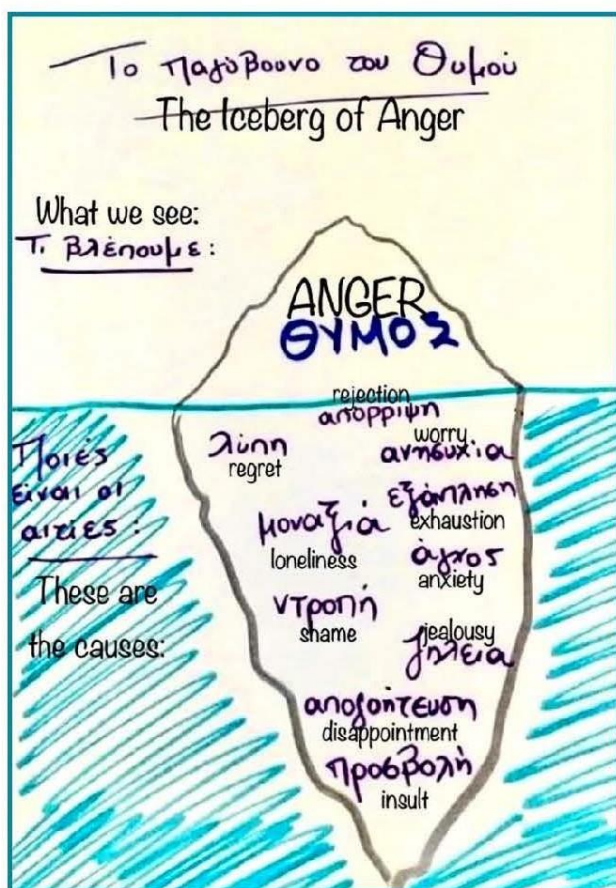 Το παγόβουνο του Θυμού
The Iceberg of Anger
What we see:
Τι βλέπουμε:
ANGER
ΘΥΜΟΣ
rejection
απόρριψη
λύπη
regret
worry
ανησυχία
εξάντληση
exhaustion
μοναξιά
loneliness
άγχος
anxiety
ντροπή
shame
jealousy
ζήλεια
απογοήτευση
disappointment
προσβολή
insult
Ποιές
είναι οι
αιτίες:
These are
the causes: